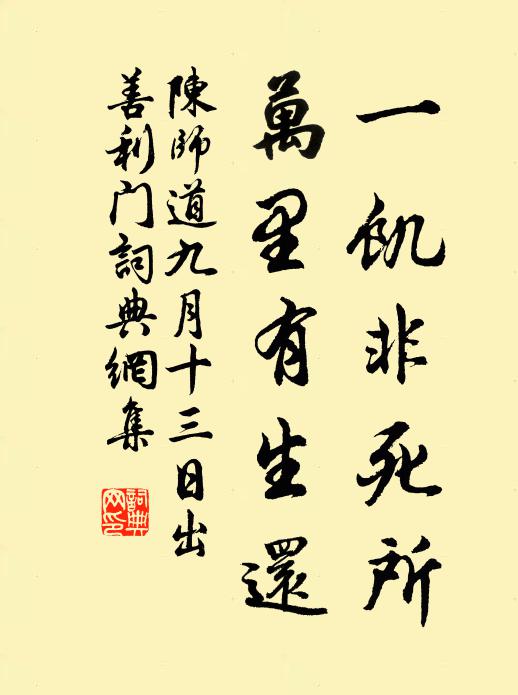 一飢非死所
萬里有生還
陳師道九月十三日出
善利门詞典網集
詞典
网印